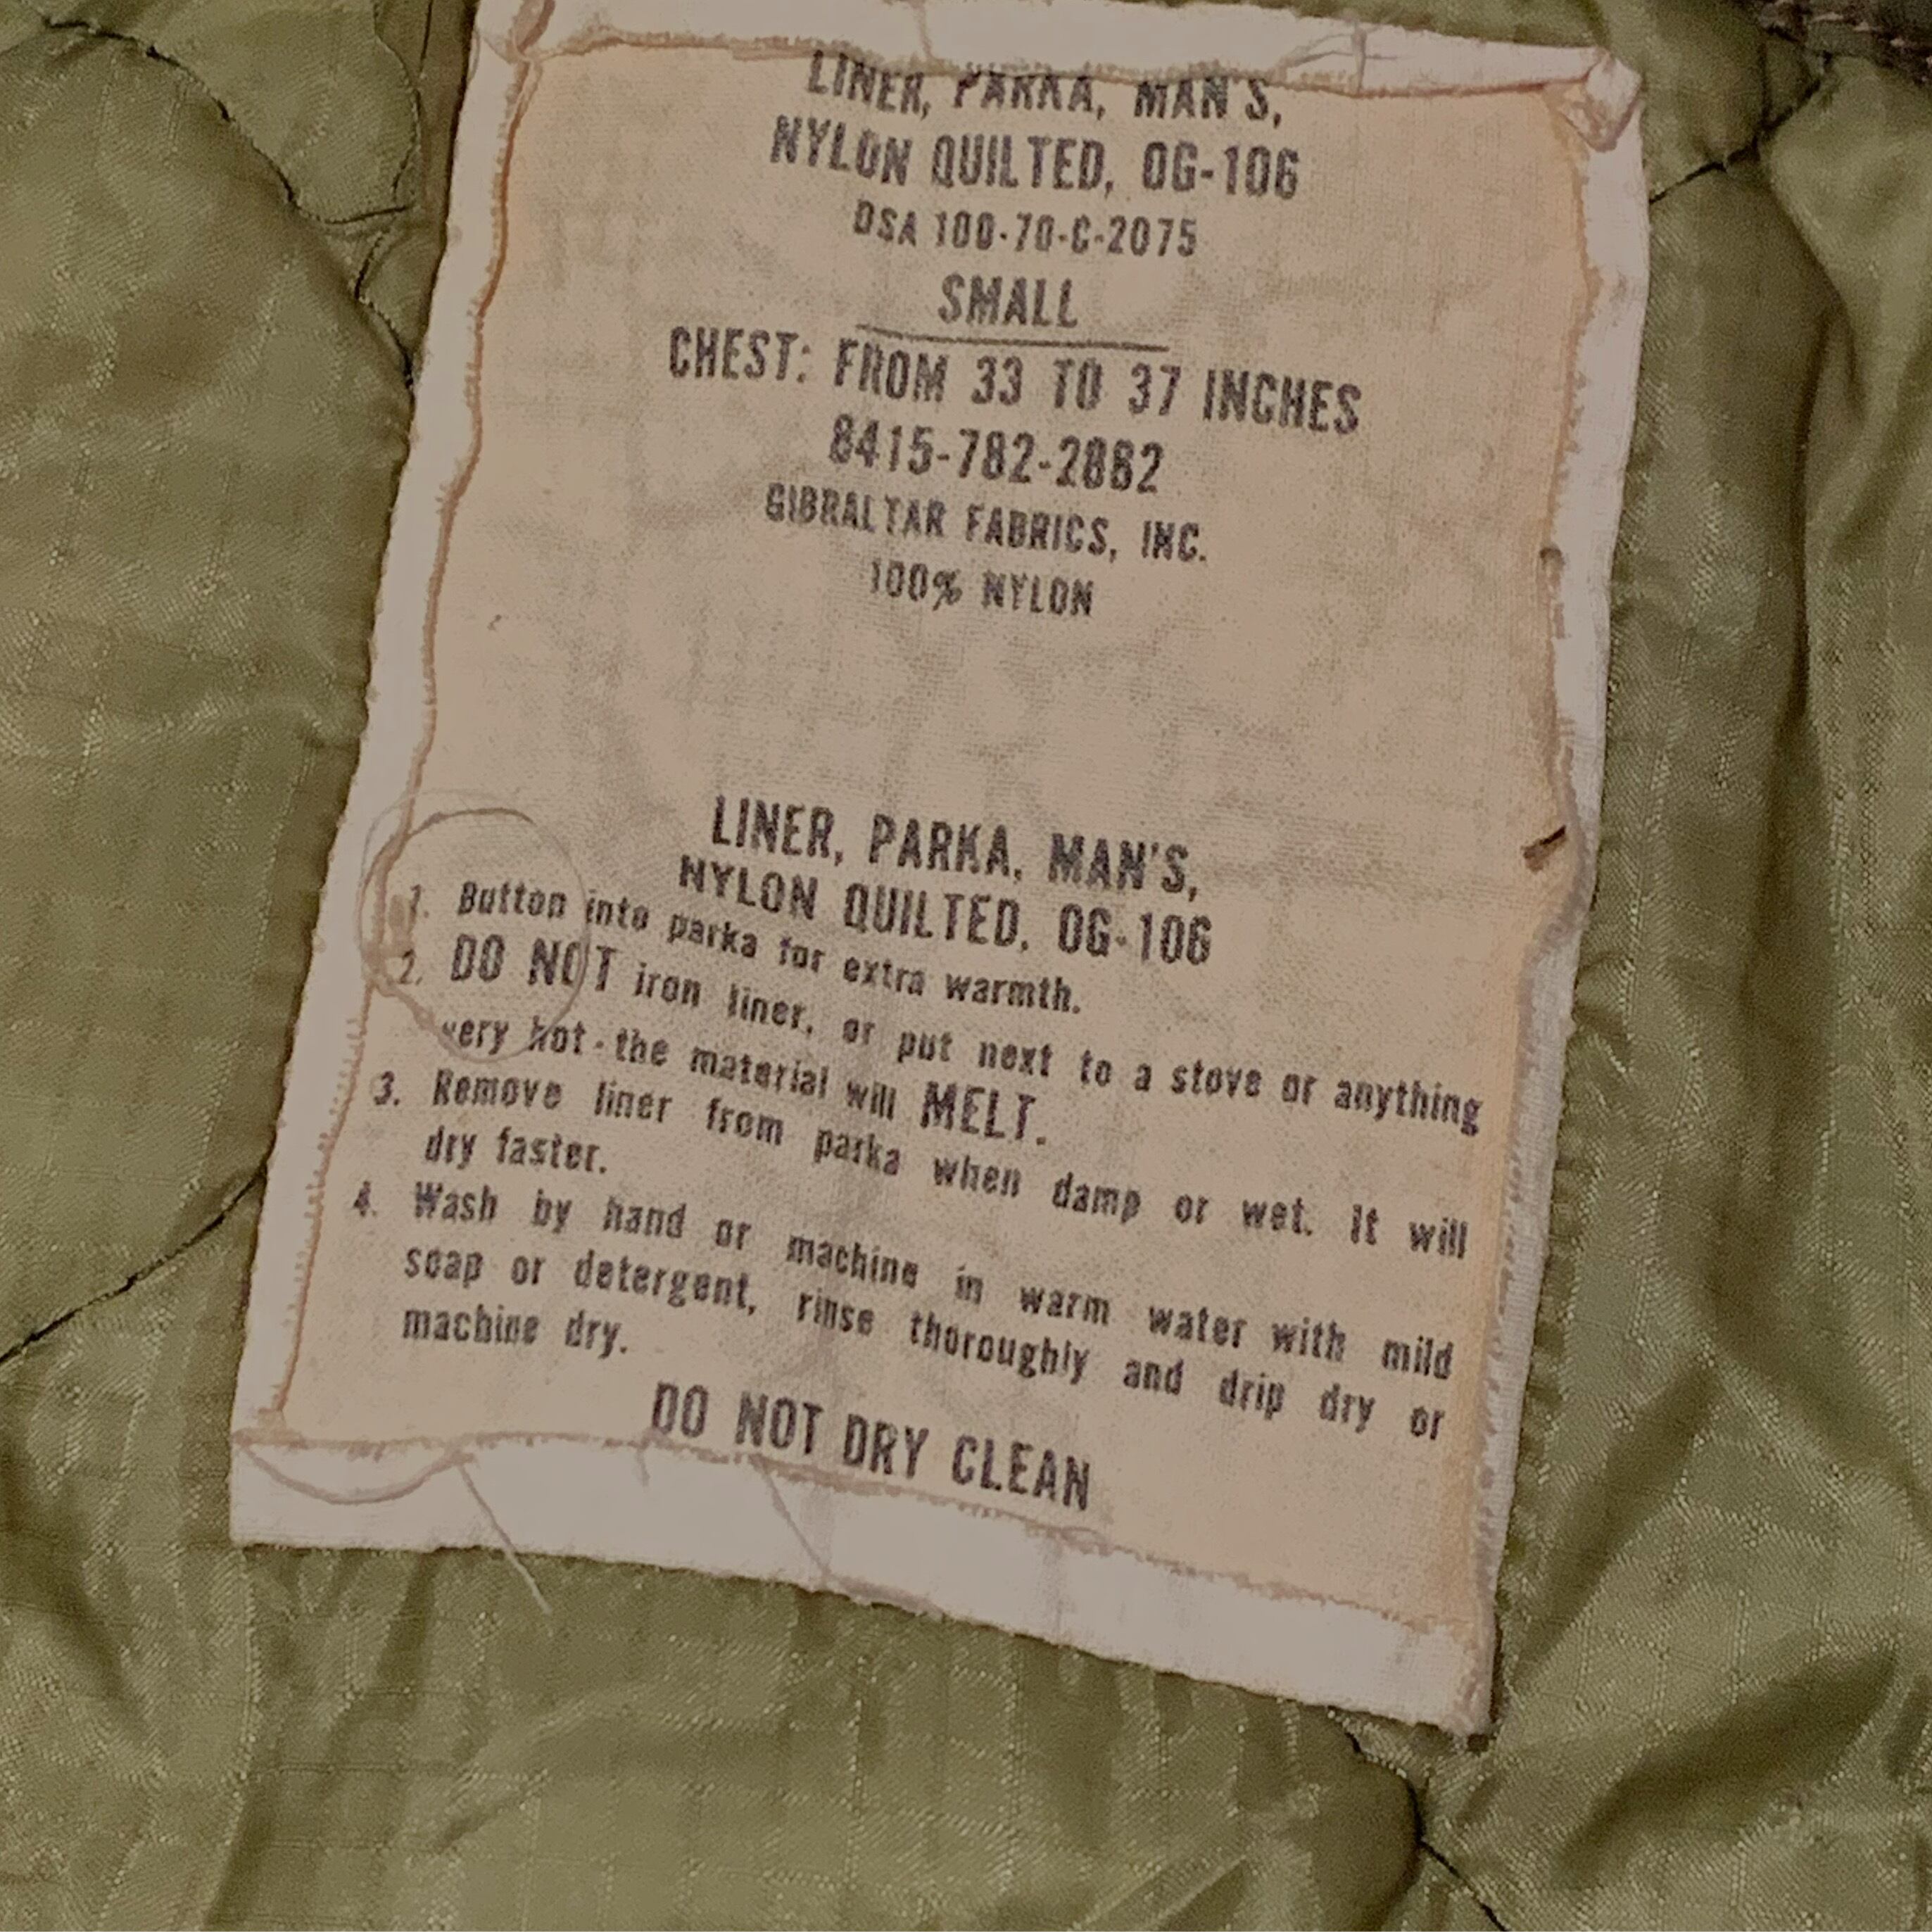 LINER, PARKA, MAN'S,
NYLON QUILTED, OG-106
DSA 100-70-C-2075
SMALL
CHEST: FROM 33 TO 37 INCHES
8415-782-2882
GIBRALTAR FABRICS, INC.
100% NYLON
LINER, PARKA, MAN'S,
NYLON QUILTED, OG-106
1. Button into parka for extra warmth.
2. DO NOT iron liner, or put next to a stove or anything
very hot - the material will MELT.
3. Remove liner from parka when damp or wet. It will
dry faster.
4. Wash by hand or machine in warm water with mild
soap or detergent, rinse thoroughly and drip dry or
machine dry.
DO NOT DRY CLEAN